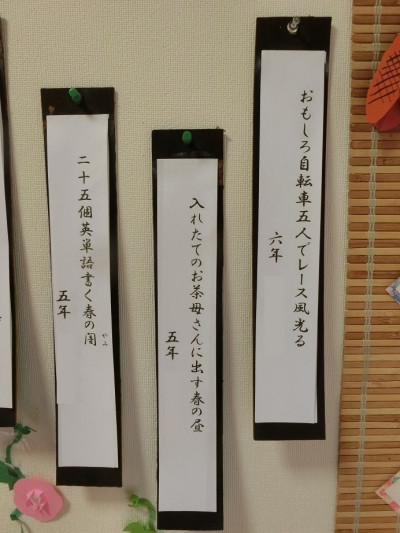 おもしろ自転車五人でレース風光る
六年
入れたてのお茶母さんに出す春の昼
五年
二十五個英単語書く春の闇
やみ
五年